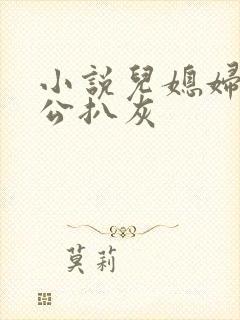 小説兒媳婦
公扒灰
莫莉